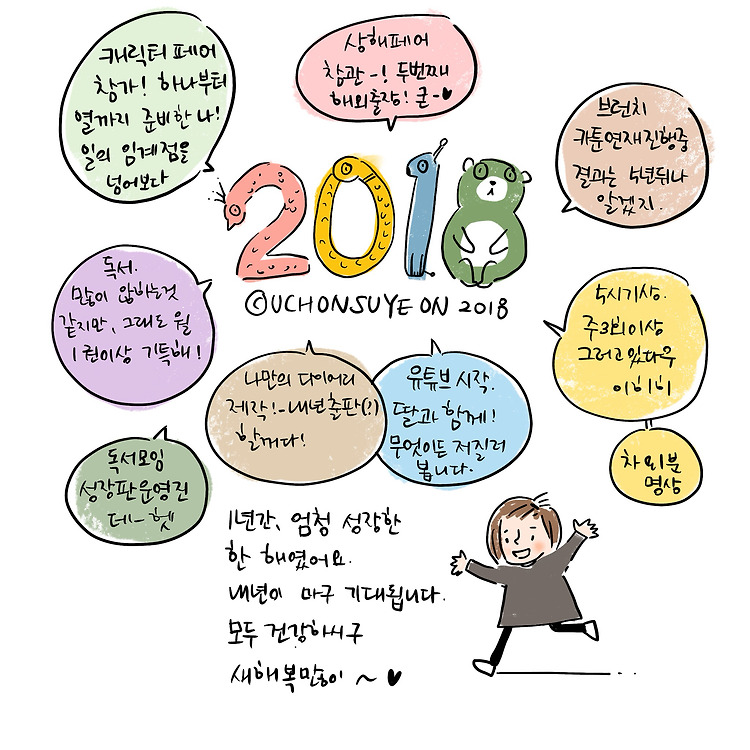 캐릭터 페어
참가! 하나부터
열까지 준비한 나!
일의 임계점을
넘어보다
상해페어
참관-! 두번째
해외출장! 굳-♥
브런치
카툰연재진행중
결과는 5년뒤나
알겠지.
2018
©UCHONSUYEON 2018
독서.
많이 않하는것
같지만, 그래도 월
1권이상 기특해!
나만의 다이어리
제작!-내년출판(?)
할꺼다!
유튜브 시작.
딸과 함께!
무엇이든 저질러
봅니다.
5시기상.
주3회이상
그러고있다우
이히히
차 외분
명상
독서모임
성장판운영진
데-헷
1년간, 엄청 성장한
한 해였어요.
내년이 마구 기대됩니다.
모두 건강하시구
새해복많이 ~ ♥